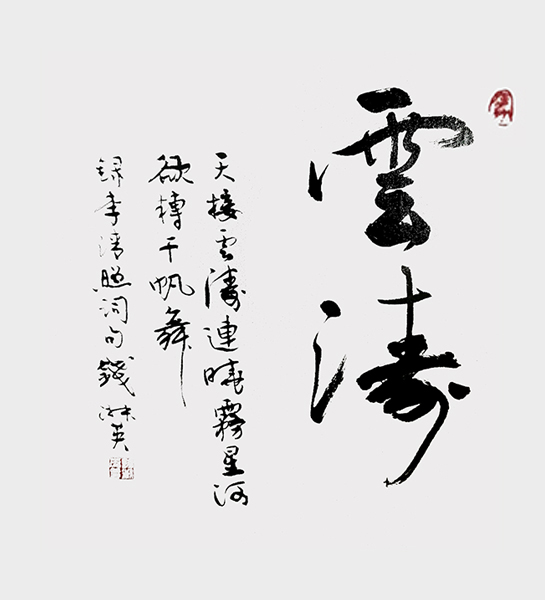 雲濤
天接云濤連曉霧星河
欲轉千帆舞
録李清照詞句錢淋英